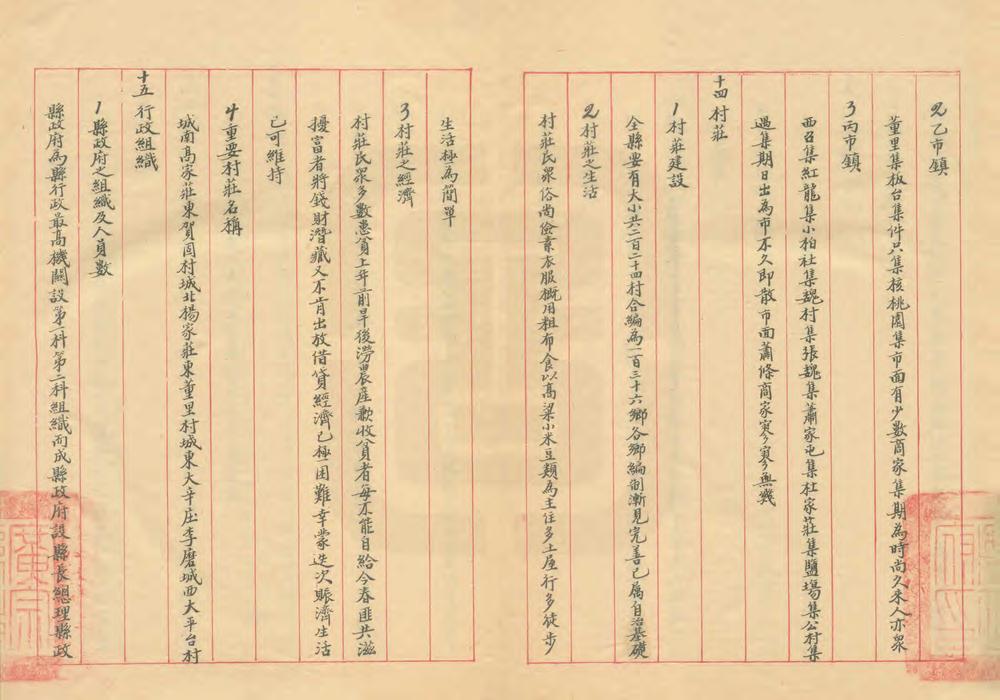 2乙市鎮
董里集板台集件只集核桃園集市面有少數商家集期為時尚久來人亦衆
3丙市鎮
西召集紅龍集小柏社集魏村集張魏集蕭家屯集杜家莊集鹽場集公村集
遇集期日出為市不久即散市面蕭條商家寥寥無幾
十四 村莊
1村莊建設
全縣要有大小共二百二十四村合編為一百三十六鄉各鄉編制漸見完善已屬自治基礎
2村莊之生活
村莊民衆俗尚儉素衣服概用粗布食以高粱小米豆類為主住多土屋行多徒步
生活極為簡單
3村莊之經濟
村莊民衆多數患貧上年前旱後澇農產歉收貧者每不能自給今春匪共滋
擾富者將錢財潛藏又不肯出放借貸經濟已極困難幸蒙迭次賑濟生活
已可維持
4重要村莊名稱
城南高家莊東賀固村城北楊家莊東董里村城東大辛庄李磨城西大平台村
十五 行政組織
1縣政府之組織及人員數
縣政府為縣行政最高機關設第一科第二科組織而成縣政府設縣長總理縣政